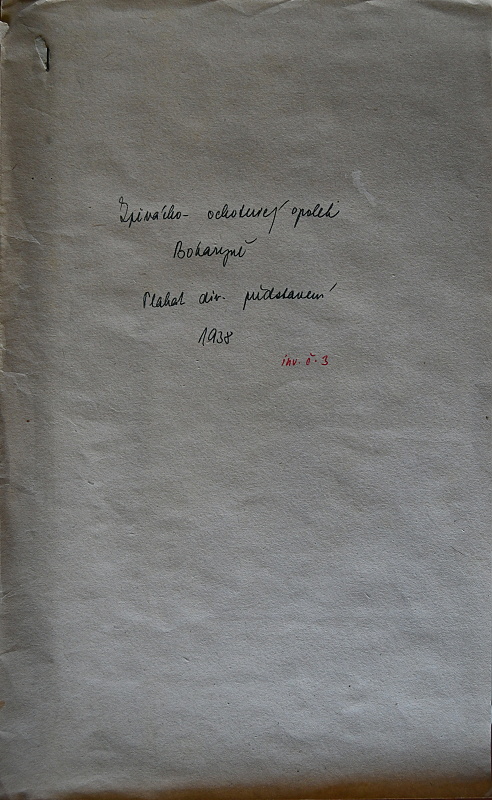 Zpěvácko- ochotnický spolek
Boharyně
Plakát div. představení
1938
inv. č. 3